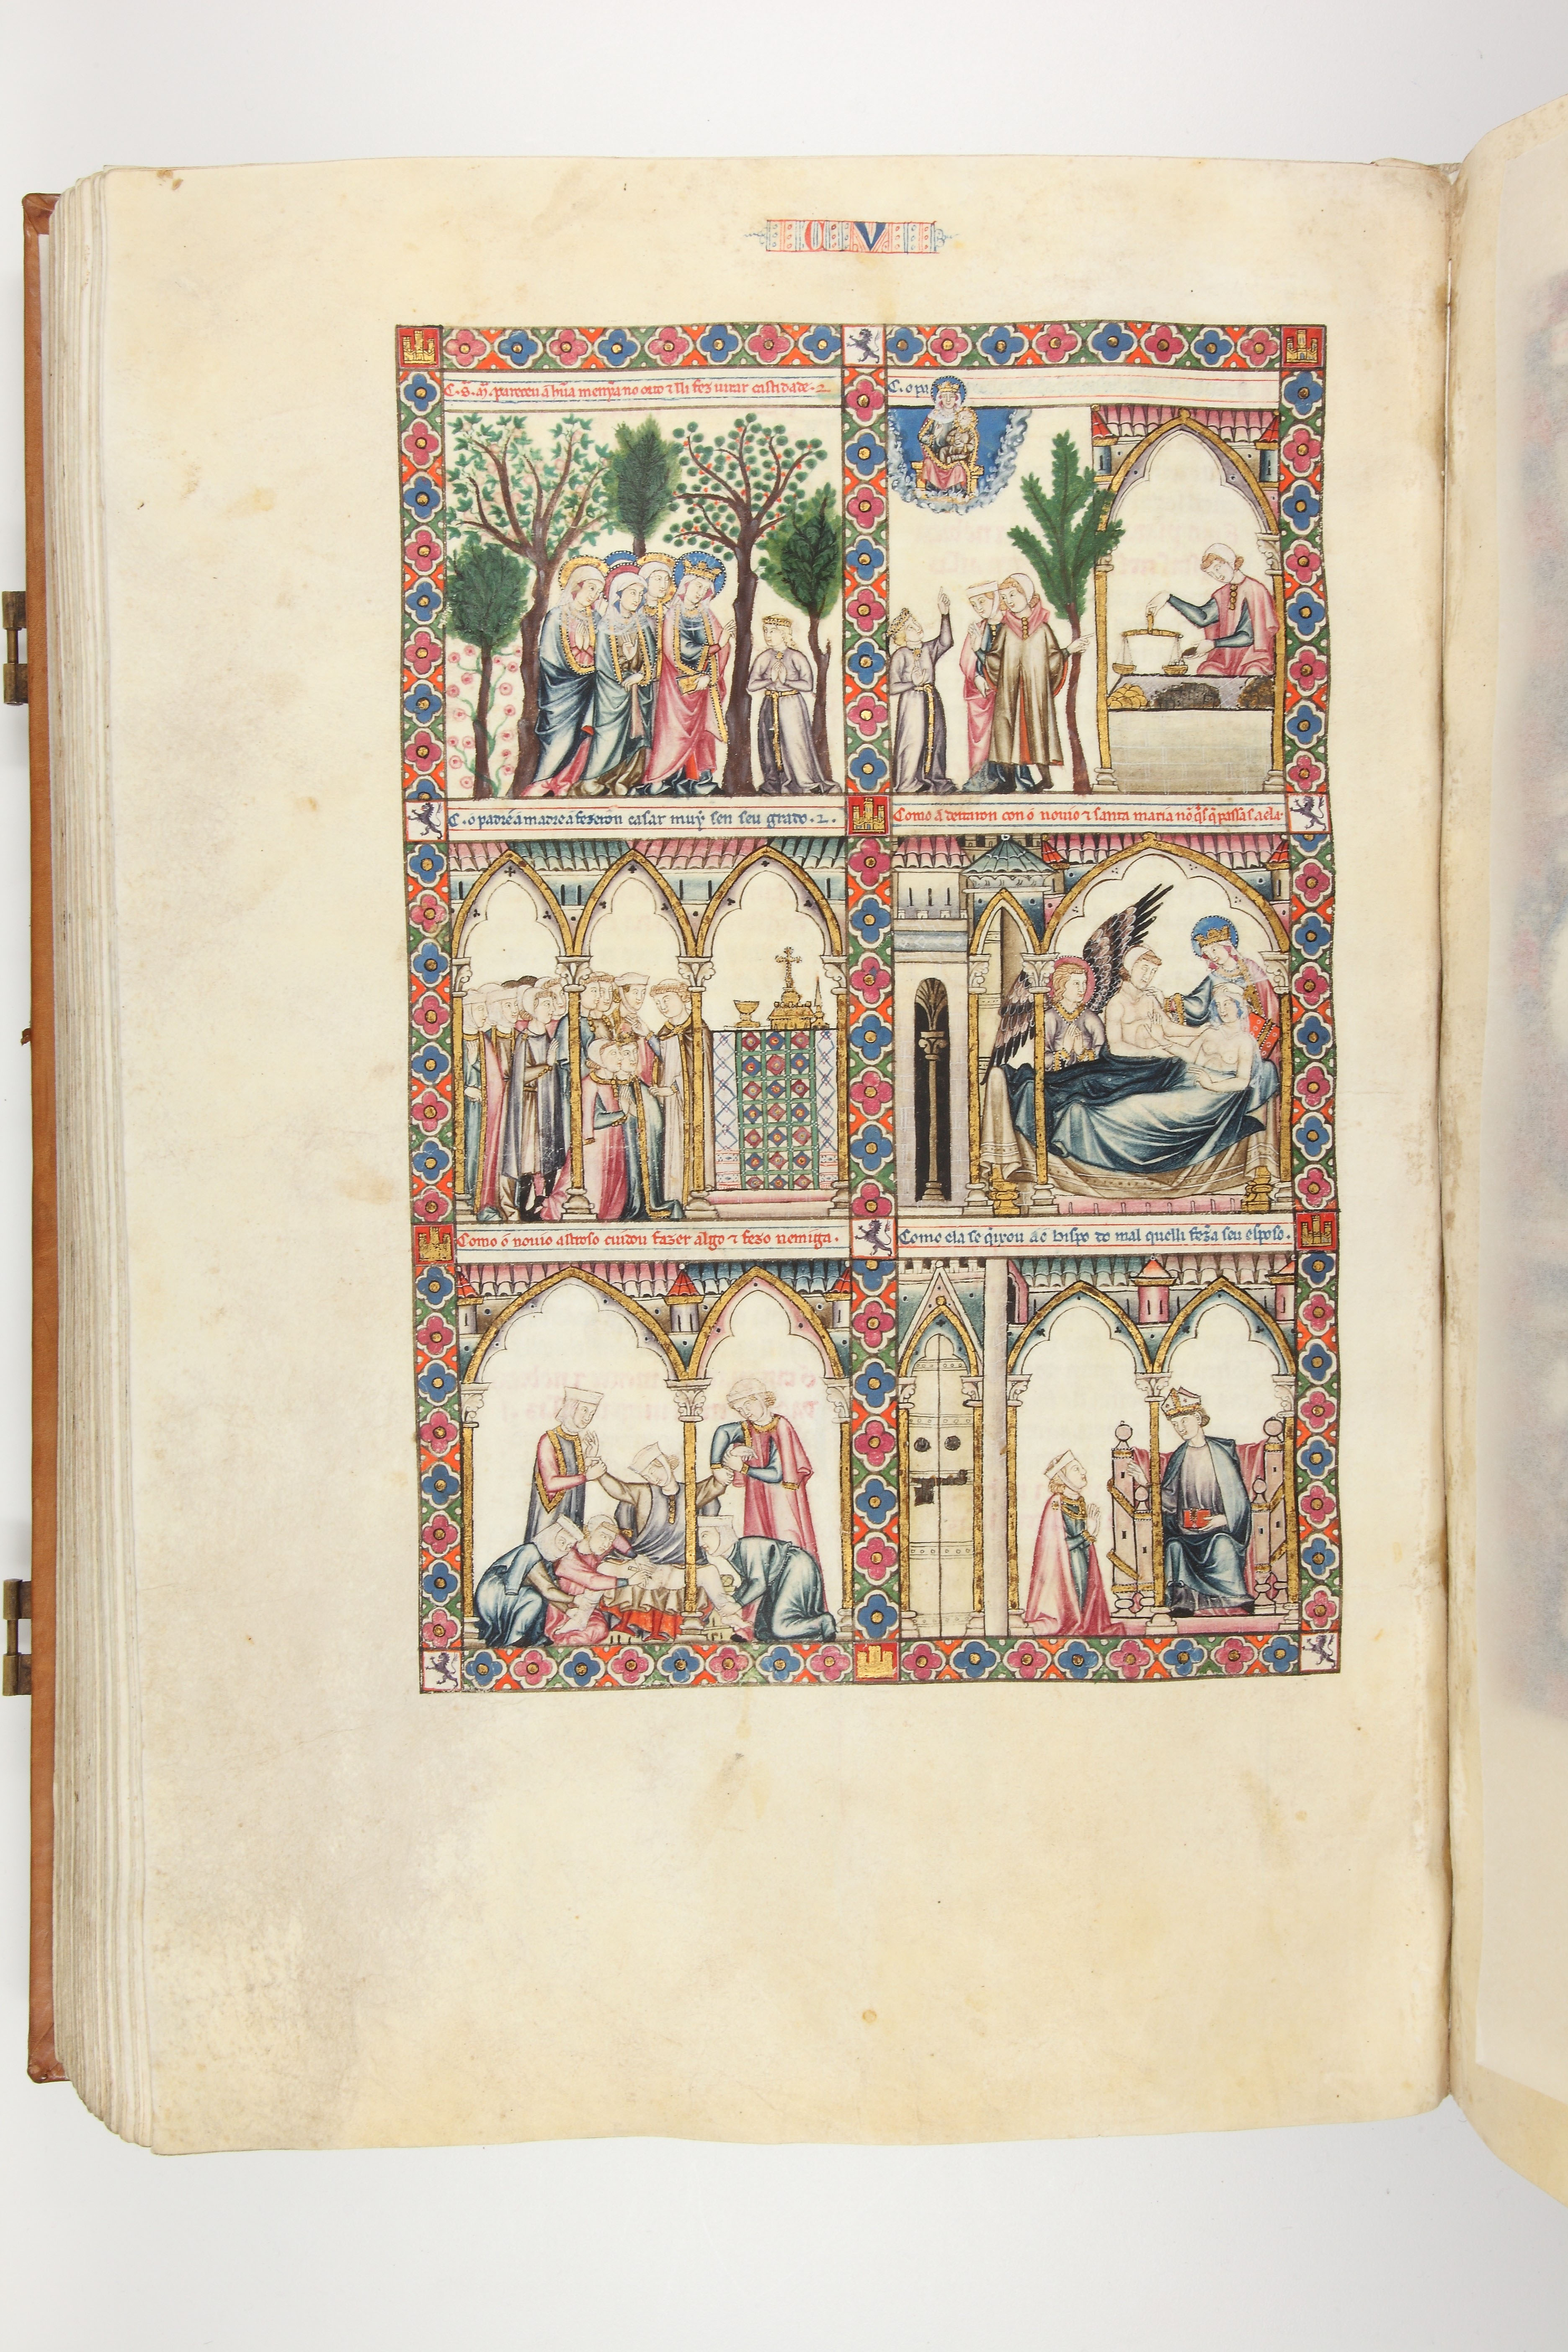 CV
C. S. M. pareceu a hũa menỹa no orto ⁊ lli fez jurar castidade.
C. o pa
C. o padre ⁊ a madre a fezeron casar muy sen seu grado.
Como a deitaron con o novio ⁊ santa maria nõ q̇s q̇ passass a ela.
Como o novio astroso cuidou fazer algo ⁊ fezo nemiga.
Como ela se q̇ixou ao bispo do mal quelli fez̃a seu esposo.